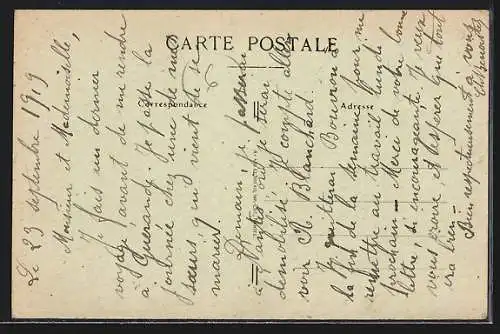 CARTE POSTALE
Correspondance
Adresse
Le 23 septembre 1919
Monsieur et Mademoiselle,
Je fais un dernier
voyage avant de me rendre
à Guérande. Je passe la
journée chez une de mes
sœurs, qui vient de se
marier.
Demain, je passerai
à Nantes où je serai
démobilisé. Je compte aller
voir M. Blanchard
Je quitterai Bouvron à
la fin de la semaine pour me
remettre au travail lundi
prochain. Merci de votre bonne
lettre, si encourageante. Je veux
vous croire, et espérer que tout
ira bien.
Bien respectueusement à vous